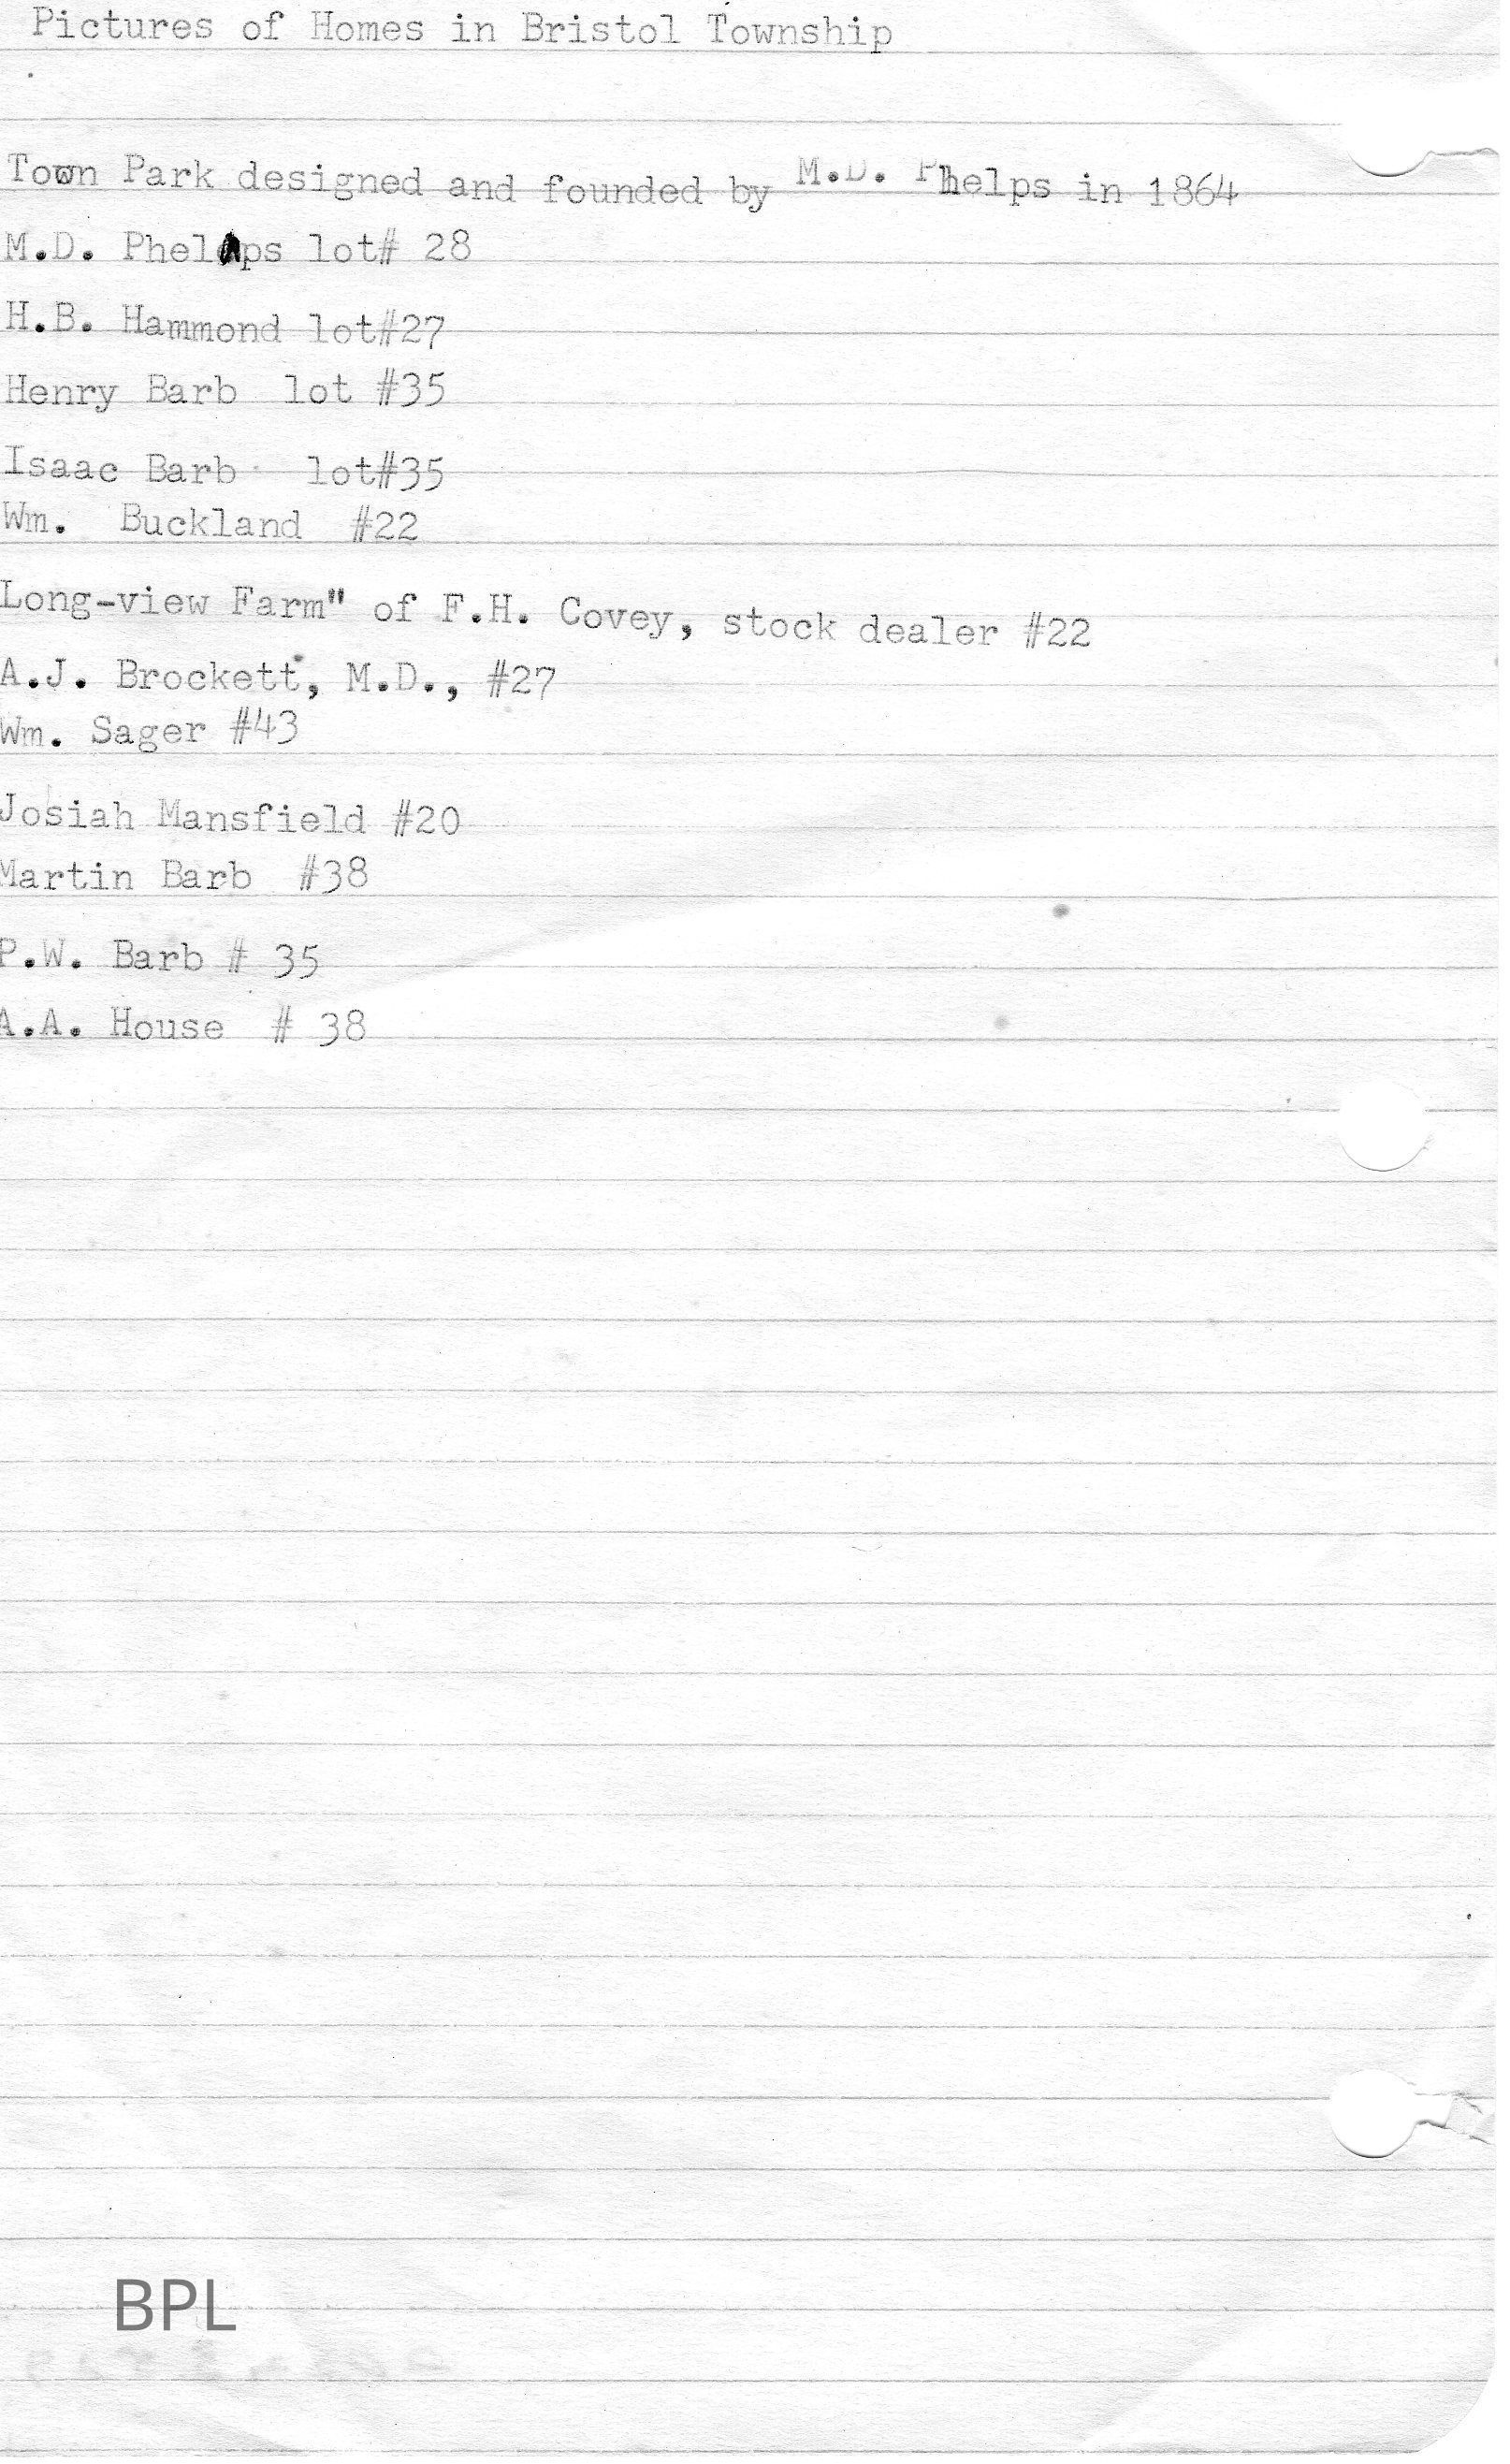 Pictures of Homes in Bristol Township
Town Park designed and founded by M.D. Phelps in 1864
M.D. Phelps lot# 28
H.B. Hammond lot#27
Henry Barb lot #35
Isaac Barb lot#35
Wm. Buckland #22
Long-view Farm" of F.H. Covey, stock dealer #22
A.J. Brockett, M.D., #27
Wm. Sager #43
Josiah Mansfield #20
Martin Barb #38
P.W. Barb # 35
A.A. House # 38
BPL